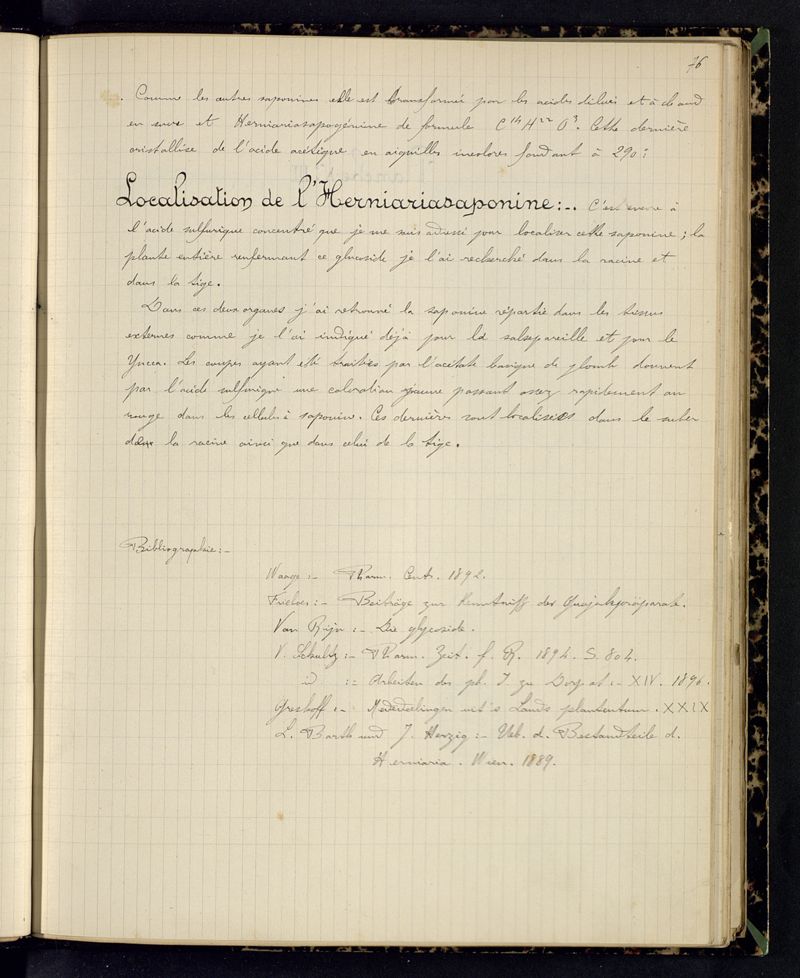 76
. Comme les autres saponines elle est transformée par les acides dilués et à chaud
en sucre et Herniariasapogénine de formule C¹⁴H²²O³. Cette dernière
cristallise de l'acide acétique en aiguilles incolores fondant à 290°
Localisation de l'Herniariasaponine:-. C'est encore à
l'acide sulfurique concentré que je me suis adressé pour localiser cette saponine; la
plante entière renfermant ce glucoside je l'ai recherché dans la racine et
dans la tige.
Dans ces deux organes j'ai retrouvé la saponine répartie dans les tissus
externes comme je l'ai indiqué déjà pour la salsepareille et pour le
Yucca. Les coupes ayant été traitées par l'acétate basique de plomb donnent
par l'acide sulfurique une coloration jaune passant assez rapidement au
rouge dans les cellules à saponine. Ces dernières sont localisées dans le suber
dans la racine ainsi que dans celui de la tige.
Bibliographie:-
Waage:- Pharm. Cent. 1892.
Frieboes:- Beiträge zur Kenntniss der Guajakpräparate.
Van Rijn:- Die glycoside.
V. Schultz:- Pharm. Zeit. f. R. 1894. S. 804.
id :- Arbeiten des ph. I zu Dorpat:- XIV. 1896.
Greshoff:- Mededelingen uit's Lands plantentuin. XXIX
L. Barth und J. Herzig:- Ueb. d. Bestandteile d.
Herniaria. Wien. 1889.